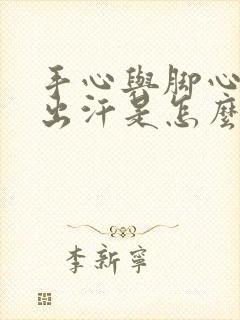 手心與脚心
出汗是怎麼
李新寧